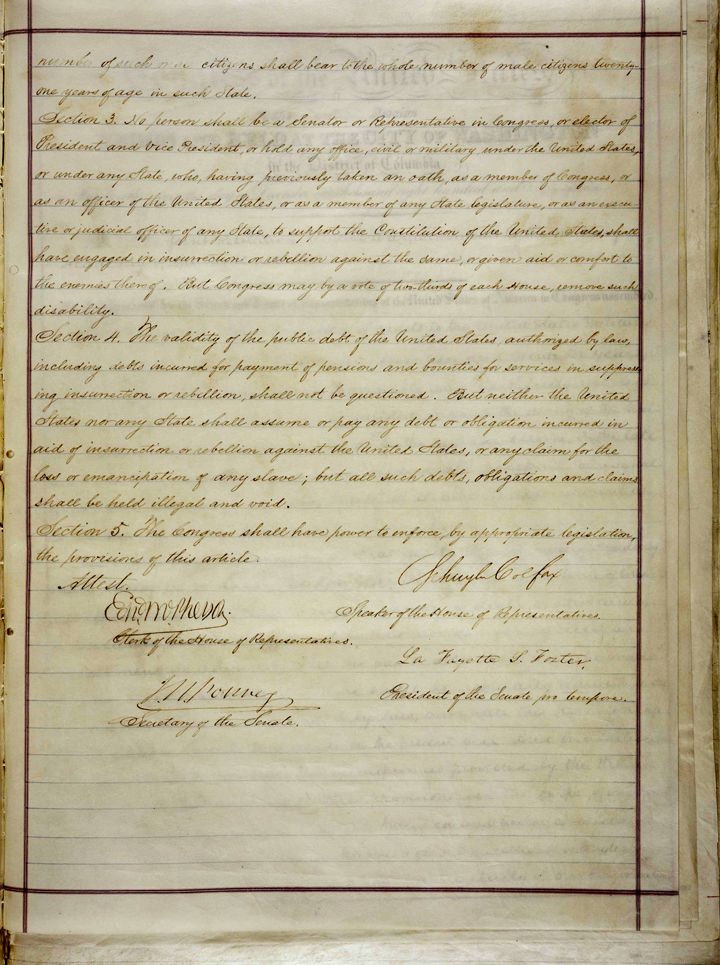 number of such male citizens shall bear to the whole number of male citizens twenty-
one years of age in such State.
Section 3. No person shall be a Senator or Representative in Congress, or elector of
President and Vice President, or hold any office, civil or military, under the United States,
or under any State, who, having previously taken an oath, as a member of Congress, or
as an officer of the United States, or as a member of any State legislature, or as an execu-
tive or judicial officer of any State, to support the Constitution of the United States, shall
have engaged in insurrection or rebellion against the same, or given aid or comfort to
the enemies thereof. But Congress may by a vote of two-thirds of each House, remove such
disability.
Section 4. The validity of the public debt of the United States authorized by law,
including debts incurred for payment of pensions and bounties for services in suppress-
ing insurrection or rebellion, shall not be questioned. But neither the United
States nor any State shall assume or pay any debt or obligation incurred in
aid of insurrection or rebellion against the United States, or any claim for the
loss or emancipation of any slave; but all such debts, obligations and claims
shall be held illegal and void.
Section 5. The Congress shall have power to enforce, by appropriate legislation,
the provisions of this article.
Attest.
Schuyler Colfax
Edwd McPherson.
Speaker of the House of Representatives.
Clerk of the House of Representatives.
La Fayette S. Foster,
J. W. Forney
President of the Senate pro tempore.
Secretary of the Senate.